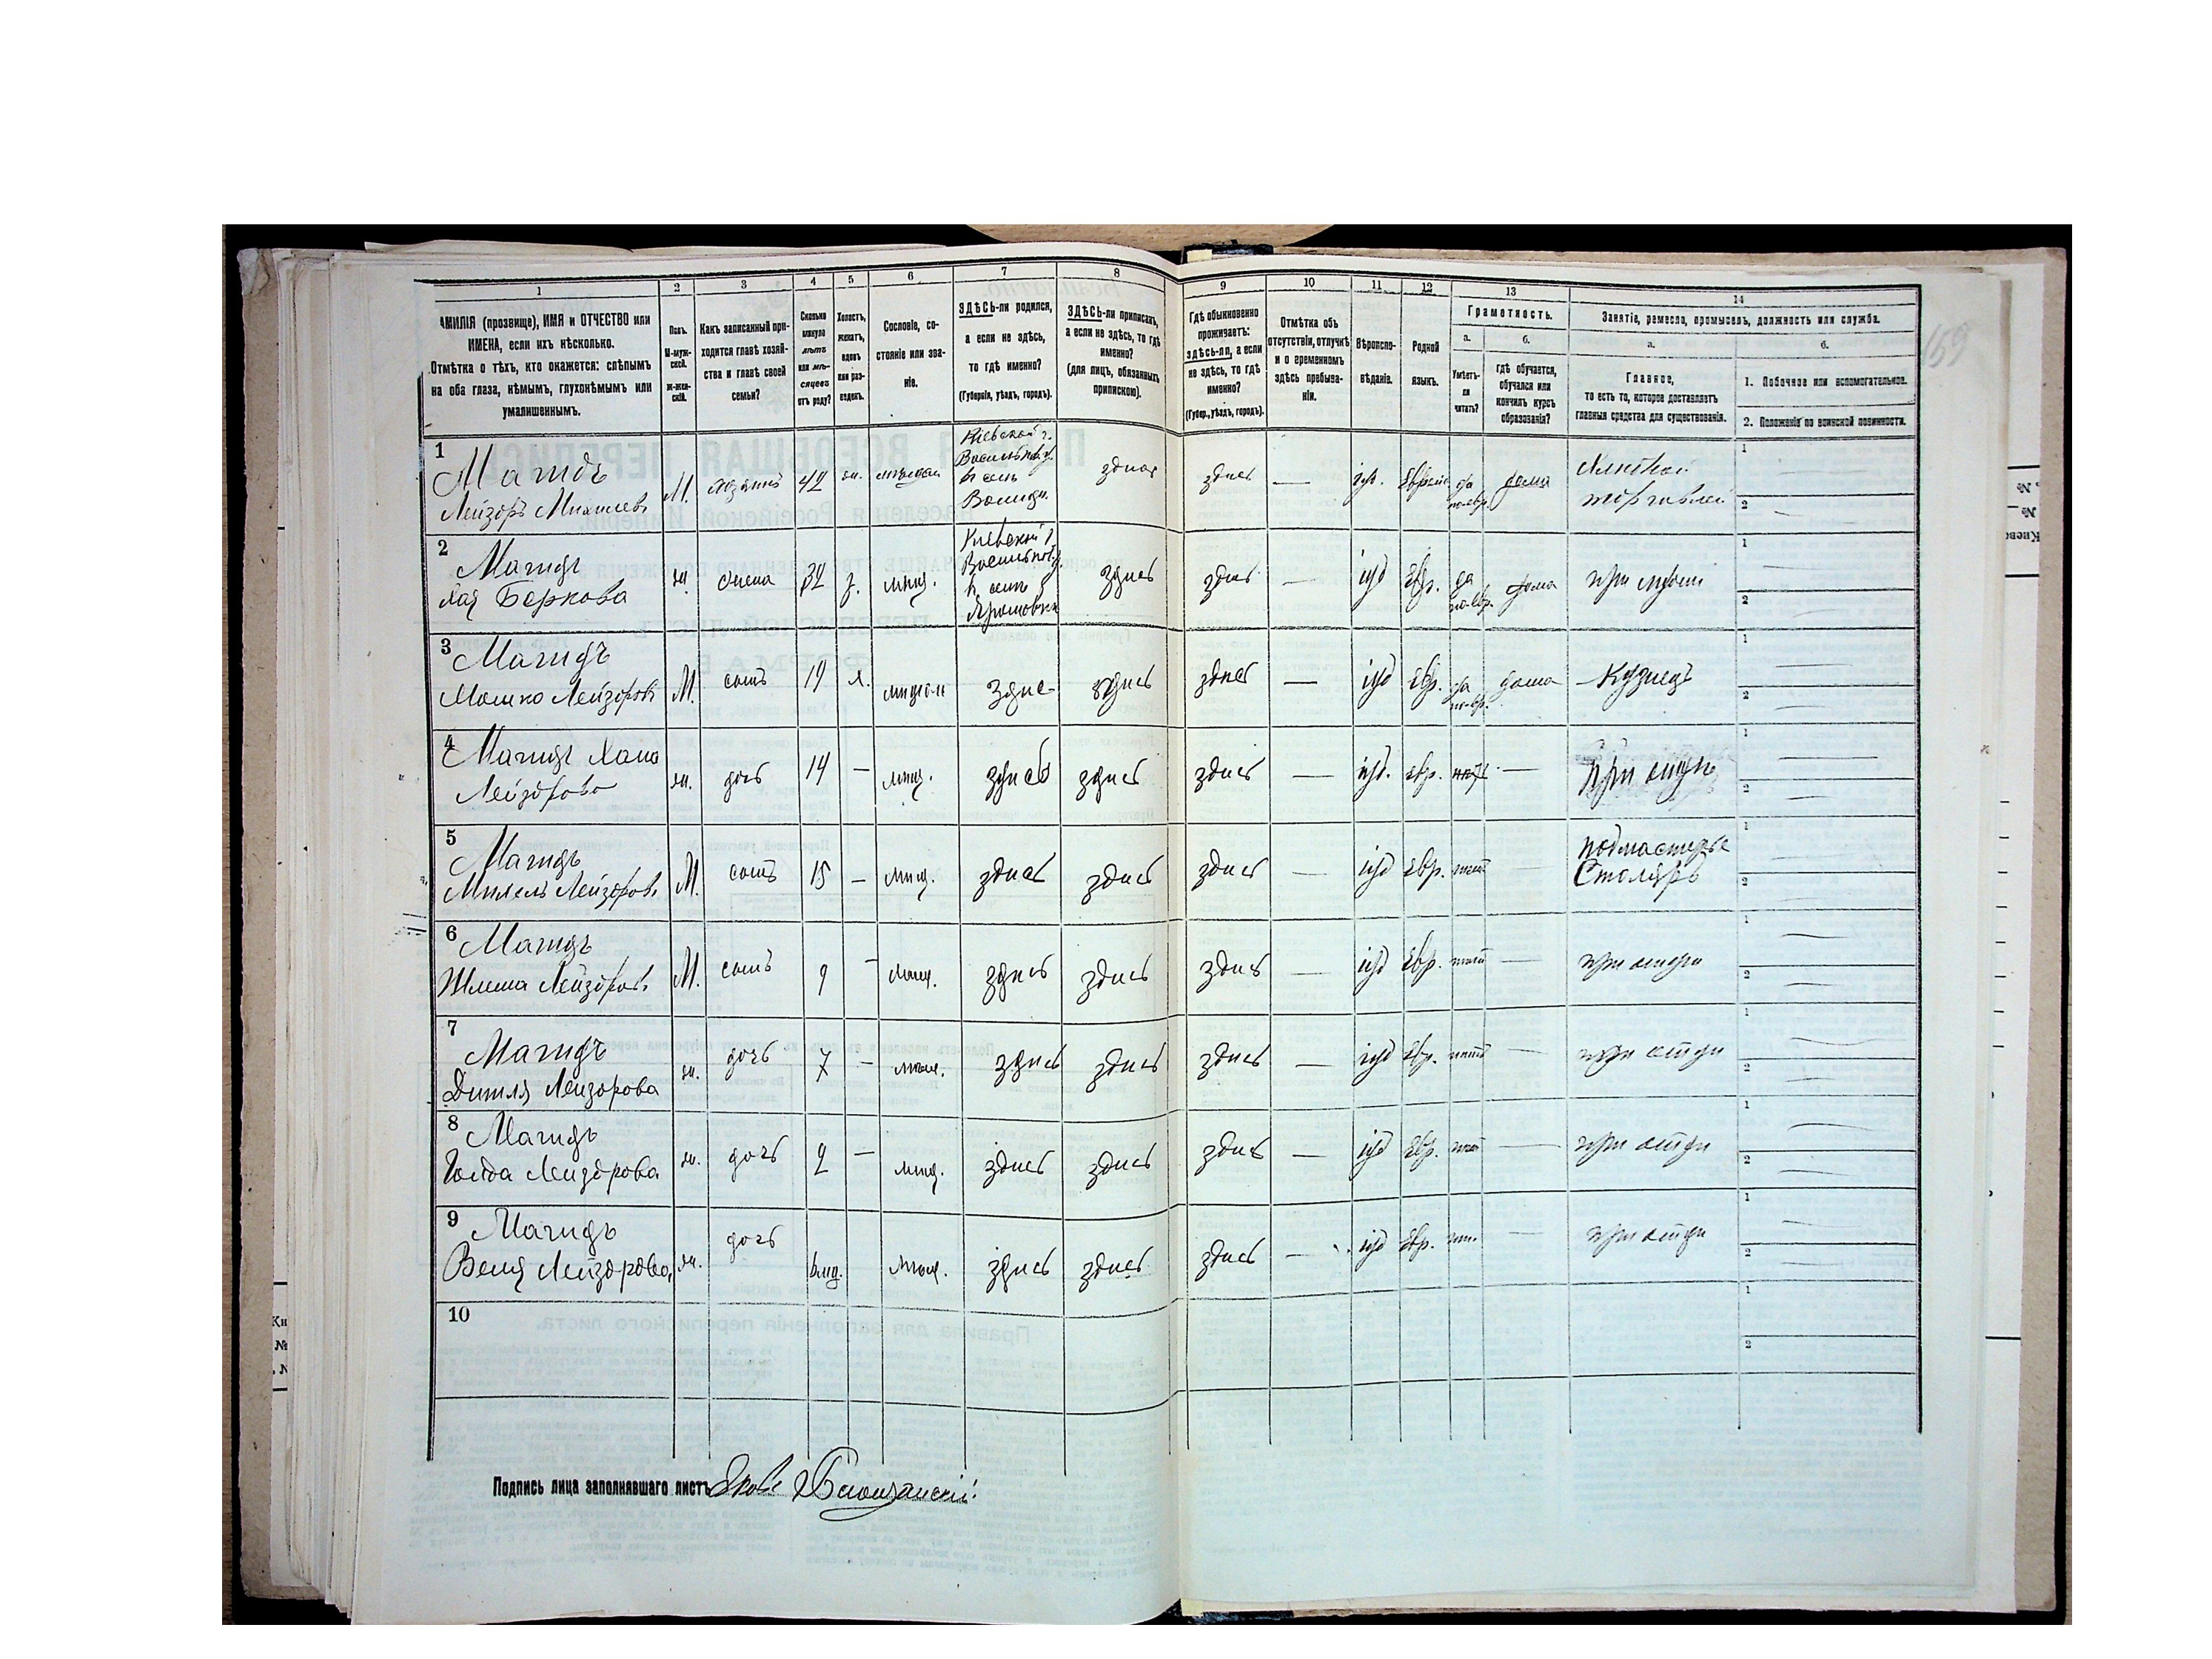 1 2 3 4 5 6 7 8 9 10 11 12 13 14
АМИЛІЯ (прозвище), ИМЯ и ОТЧЕСТВО или
ИМЕНА, если ихъ нѣсколько.
Отмѣтка о тѣхъ, кто окажется: слѣпымъ
на оба глаза, нѣмымъ, глухонѣмымъ или
умалишеннымъ.
Полъ.
М-муж-
ской.
ж-жен-
скій.
Какъ записанный при-
ходится главѣ хозяй-
ства и главѣ своей
семьи?
Сколько
минуло
лѣтъ
или мѣ-
сяцевъ
отъ роду?
Холостъ,
женатъ,
вдовъ
или раз-
веденъ.
Сословіе, со-
стояніе или зва-
ніе.
ЗДѢСЬ-ли родился,
а если не здѣсь,
то гдѣ именно?
(Губернія, уѣздъ, городъ).
ЗДѢСЬ-ли приписанъ,
а если не здѣсь, то гдѣ
именно?
(для лицъ, обязанныхъ
припискою).
Гдѣ обыкновенно
проживаетъ:
здѣсь-ли, а если
не здѣсь, то гдѣ
именно?
(Губер., уѣздъ, городъ).
Отмѣтка объ
отсутствіи, отлучкѣ
и о временномъ
здѣсь пребыва-
ніи.
Вѣроиспо-
вѣданіе.
Родной
языкъ.
Грамотность.
а. б.
Умѣетъ-
ли
читать?
гдѣ обучается,
обучался или
кончилъ курсъ
образованія?
Занятіе, ремесло, промыселъ, должность или служба.
а. б.
Главное,
то есть то, которое доставляетъ
главныя средства для существованія.
1. Побочное или вспомогательное.
2. Положеніе по воинской повинности.
159
1
Магидъ
Лейзоръ
М. 42
Кіевской г.
здѣсь здѣсь — іуд. да дома
торговлей
1
2
2
Магидъ
Хая Беркова
ж. жена 32 з. мѣщ.
Кіевской г.
здѣсь здѣсь — іуд евр. да дома при мужѣ
1
2
3
Магидъ
Мошко Лейзоровъ
М. сынъ 19 х. здѣсь здѣсь здѣсь — іуд евр. да дома Кузнецъ
1
2
4
Магидъ Хана
Лейзорова
ж. дочь 14 — мѣщ. здѣсь здѣсь здѣсь — іуд. евр. нѣтъ — при отцѣ
1
2
5
Магидъ
Лейзоровъ
М. сынъ 15 — мѣщ. здѣсь здѣсь здѣсь — іуд евр. нѣтъ —
подмастерье
Столяръ
1
2
6
Магидъ
Шлема Лейзоровъ
М. сынъ 9 — мѣщ. здѣсь здѣсь здѣсь — іуд евр. нѣтъ — при отцѣ
1
2
7
Магидъ
Лейзорова
ж. дочь 7 — мѣщ. здѣсь здѣсь здѣсь — іуд евр. нѣтъ — при отцѣ
1
2
8
Магидъ
Голда Лейзорова
ж. дочь 2 — мѣщ. здѣсь здѣсь здѣсь — іуд евр. нѣтъ — при отцѣ
1
2
9
Магидъ
Лейзорова
ж. дочь мѣщ. здѣсь здѣсь здѣсь — іуд евр. — при отцѣ
1
2
10
1
2
Подпись лица заполнявшаго листъ